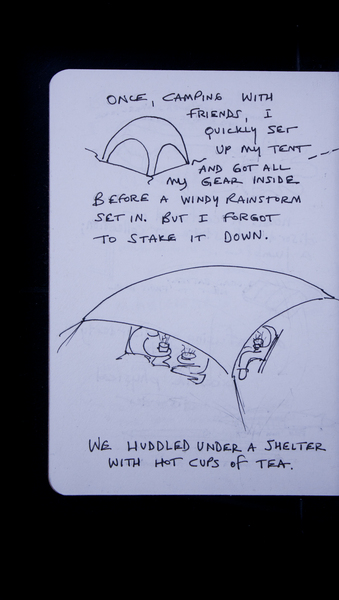 ONCE, CAMPING WITH
FRIENDS, I
QUICKLY SET
UP MY TENT
AND GOT ALL
MY GEAR INSIDE
BEFORE A WINDY RAINSTORM
SET IN. BUT I FORGOT
TO STAKE IT DOWN.
WE HUDDLED UNDER A SHELTER
WITH HOT CUPS OF TEA.